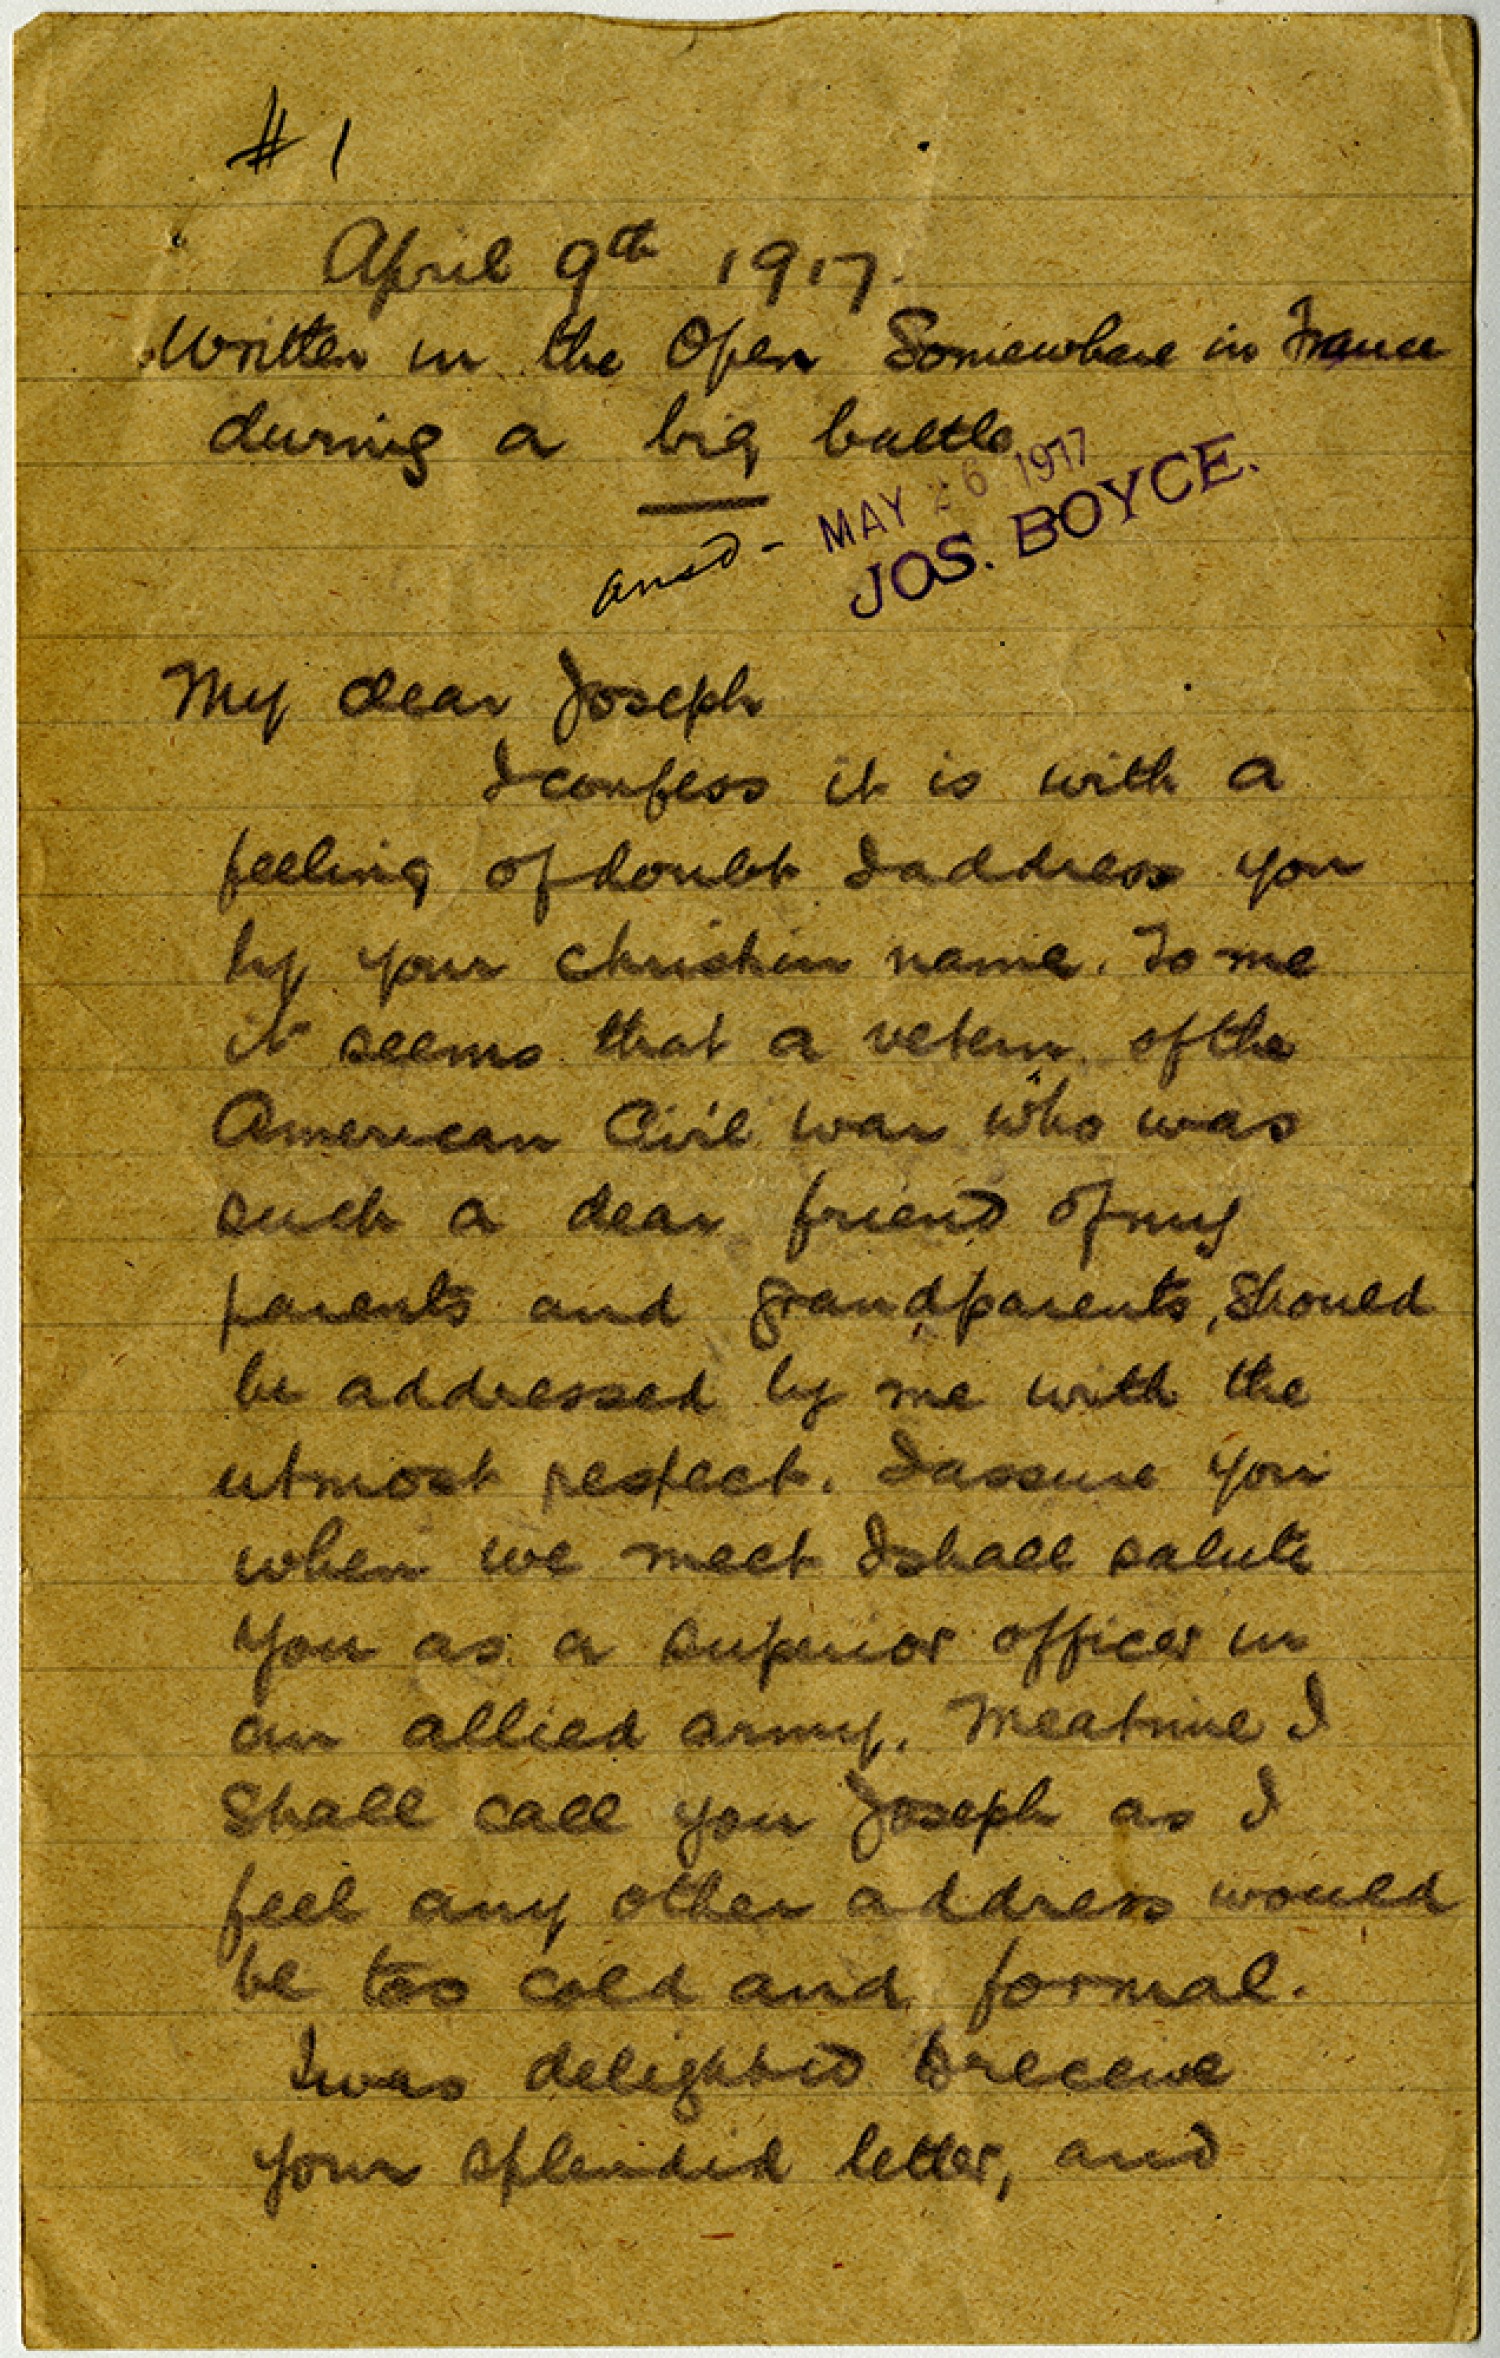 # 1
April 9th 1917.
Written in the Open Somewhere in France
during a big battle
ansd - MAY 26 1917
JOS. BOYCE.
My dear Joseph
I confess it is with a
feeling of doubt I address you
by your christian name. To me
it seems that a vetern of the
American Civil war who was
such a dear friend of my
parents and grandparents, should
be addressed by me with the
utmost respect. I assure you
when we meet I shall salute
you as a superior officer in
our allied army. Meatime I
shall call you Joseph as I
feel any other address would
be too cold and formal.
I was delighted to receive
your splendid letter, and